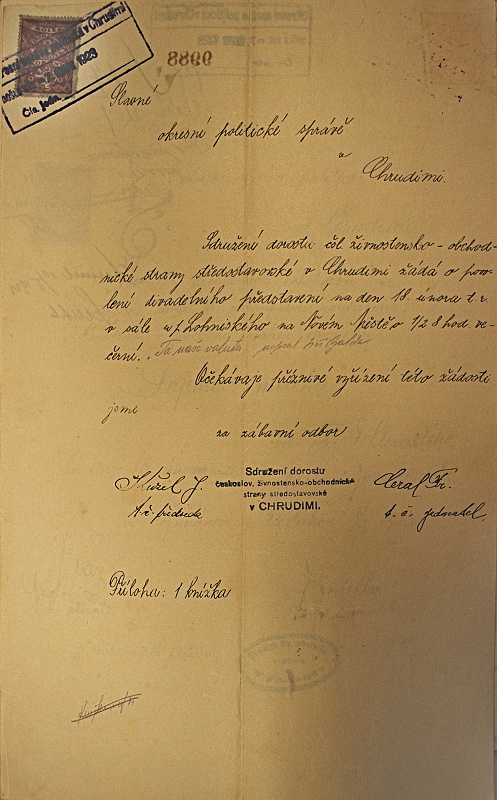 v Chrudimi
1923
Čís. jedn.
8899
Slavné
okresní politické správě
v
Chrudimi.
Sdružení dorostu čsl. živnostensko-obchod-
nické strany středostavovské v Chrudimi žádá o povo-
lení divadelního představení na den 18. února t. r.
v sále u f. Lohniského na Novém Městě o 1/2 8 hod. ve-
černí. „Ta naše valuta" napsal
Očekávaje příznivé vyřízení této žádosti
jsme
za zábavní odbor
Kužel J.
t. č. předseda
Sdružení dorostu
českoslov. živnostensko-obchodnické
strany středostavovské
v CHRUDIMI.
Ceral Fr.
t. č. jednatel.
Příloha: 1 knížka